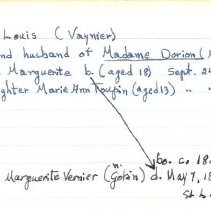 Louis (Vaynier)
nd husband of Madame Dorion (
Marguerite b. (aged 18) Sept. 2
ghter Marie Ann Toupin (aged 13) " "
bo. ca 18
Marguerite Vernier (Gobin) d. May 7, 18
n.
St.